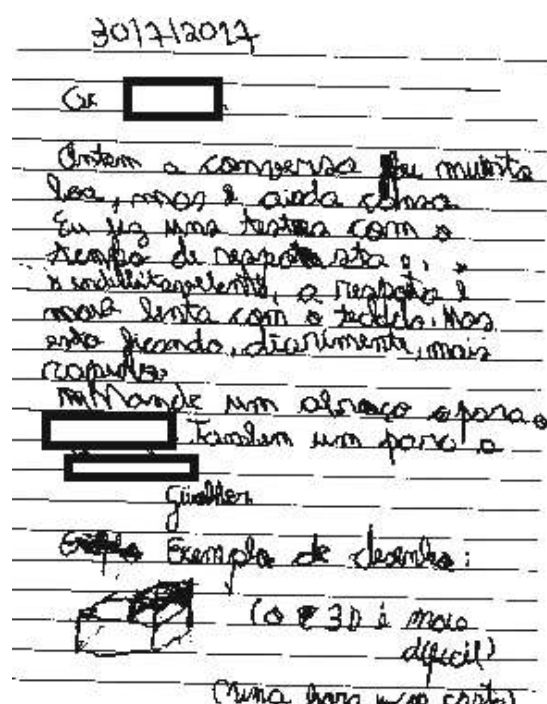 30/7/2017
Ontem a conversa foi muinta
boa, mas é ainda cansa
Eu fiz uns testes com o
tempo de resposta e,
a resposta é
mais lenta com o teclado. Mas
esta ficando, diarimente, mais
rapida
Mande um abraço para o
Tanbem um para a
Exemplo de desenho:
(o 3D é mais
dificil)